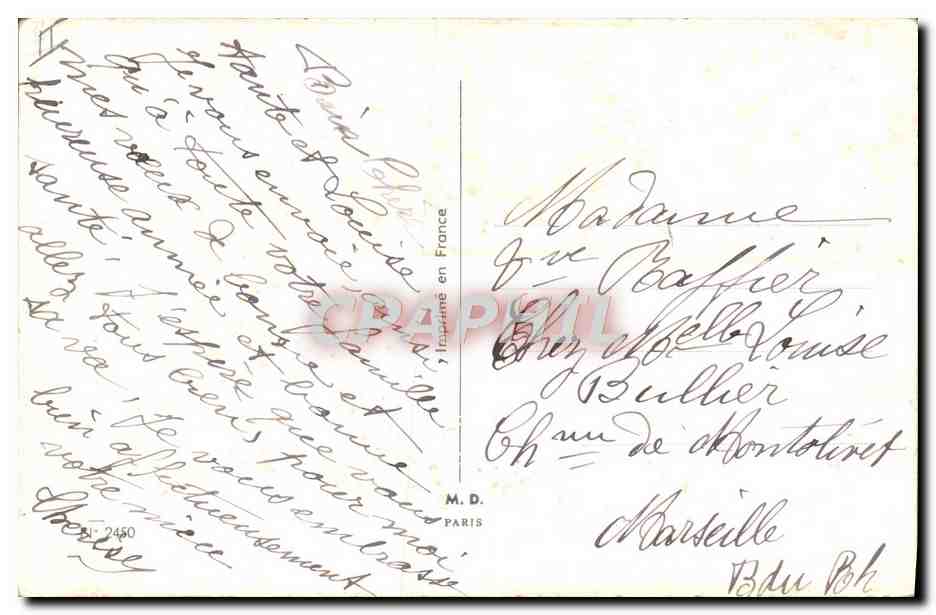 Bien Chère
tante et Louise
Je vous envoie ainsi
qu'à toute votre famille
mes vœux de bonne et
heureuse année et bonne
santé. J'espère que vous
allez tous bien, pour moi
sa va. Je vous embrasse
bien affectueusement
votre nièce
Thérèse
, Imprimé en France
CPAPHIL
M. D.
PARIS
N° 2450
Madame
Vve Raffier
Chez Melle Louise
Bullier
Chnn de Montolivet
Marseille
Bdu Rh